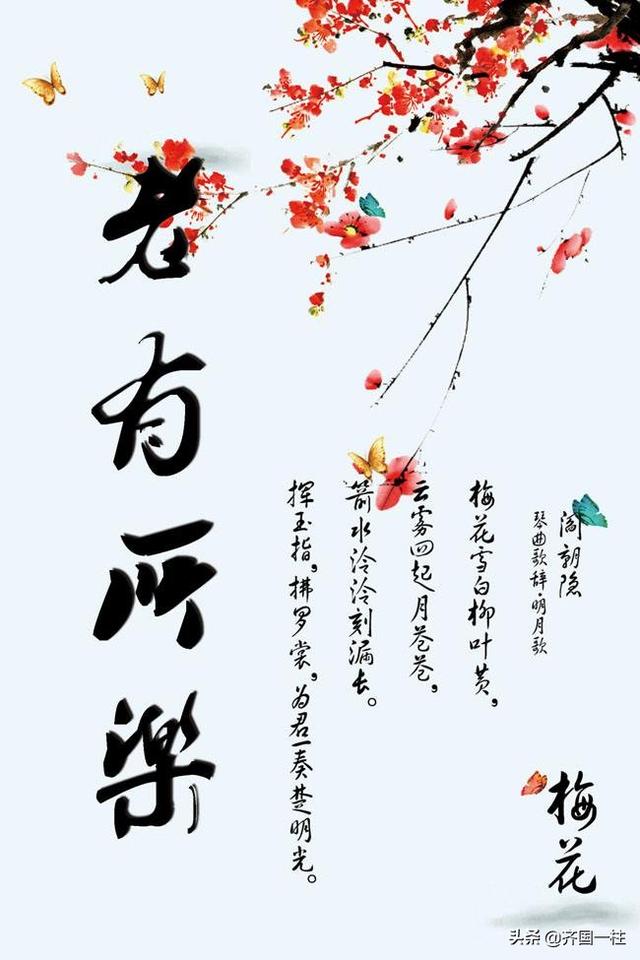 老有所樂
阎朝隐
琴曲歌辞·明月歌
梅花雪白柳叶黄，
云雾四起月苍苍，
箭水泠泠刻漏长。
挥玉指，拂罗裳，为君一奏楚明光。
梅花
头条 @齐国一柱